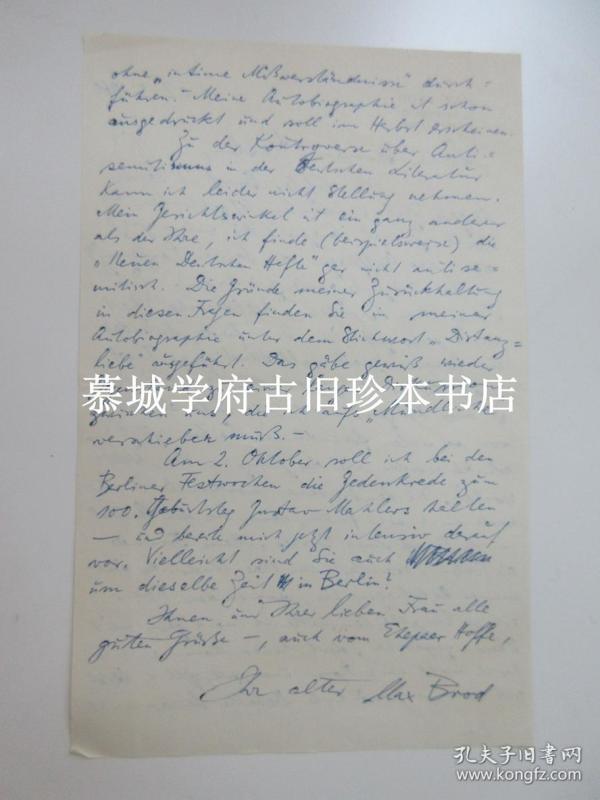 ohne „intime Mißverständnisse" durch-
führen. – Meine Autobiographie ist schon
ausgedruckt und soll im Herbst erscheinen.
Zu der Kontroverse über Anti-
semitismus in der Deutschen Literatur
kann ich leider nicht Stellung nehmen.
Mein Gesichtswinkel ist ein ganz anderer
als der Ihre, ich finde (beispielsweise) die
„Neuen Deutschen Hefte" gar nicht antise-
mitisch. Die Gründe meiner Zurückhaltung
in diesen Fragen finden Sie in meiner
Autobiographie unter dem Stichwort „Distanz-
liebe" ausgeführt. Das gäbe gewiß wieder
慕城学府古旧珍本书店
zwischen uns, die ich aufs
verschieben muß. –
Am 2. Oktober soll ich bei den
Berliner Festwochen die Gedenkrede zum
100. Geburtstag Gustav Mahlers halten
– und bereite mich jetzt intensiv darauf
vor. Vielleicht sind Sie auch
um dieselbe Zeit in Berlin?
Ihnen und Ihrer lieben Frau alle
guten Grüße –, auch vom Ehepaar Hoffe,
Ihr alter Max Brod
孔夫子旧书网
www.kongfz.com